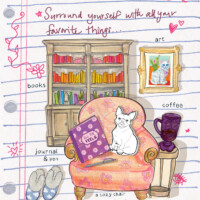 Surround yourself with all your
favorite things...
art
books
coffee
journal
& pen
a cozy chair